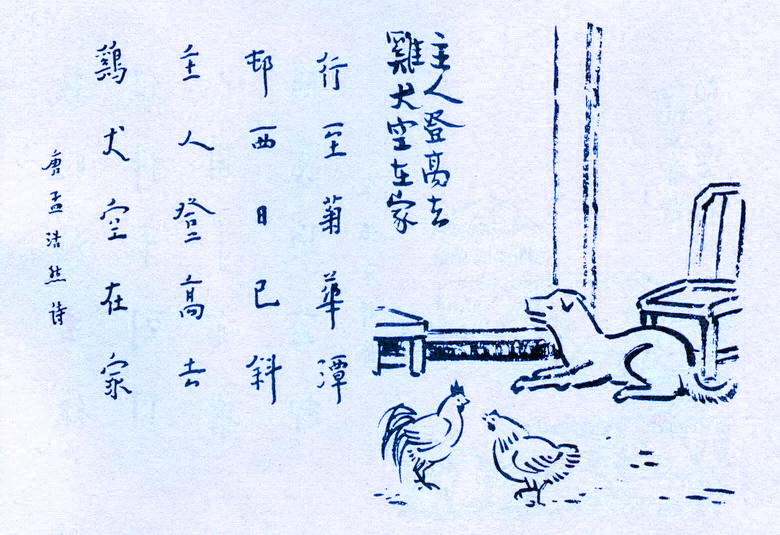 主人登高去
雞犬空在家
行至菊華潭
邨西日已斜
主人登高去
鷄犬空在家
唐孟浩然诗